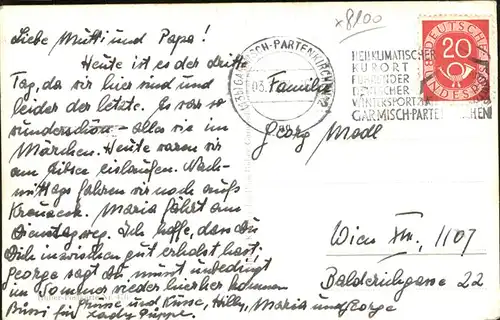 x8100
Liebe Mutti und Papa!
Heute ist es der dritte
Tag, da wir hier sind und
leider der letzte. Es war so
wunderschön – alles wie im
Märchen. Heute waren wir
am Eibsee eislaufen. Nach-
mittags fahren wir noch aufs
Kreuzeck. Maria fährt am
Dienstag weg. Ich hoffe, dass Du
Dich inzwischen gut erholst hast,
George sagt Du musst unbedingt
im Sommer wieder hierher kommen
Bussi für
Grüsse und Küsse, Hilly, Maria und George
Lady Puppe.
GARMISCH-PARTENKIRCHEN 2
HEILKLIMATISCHER
KURORT
FÜHRENDER
DEUTSCHER
WINTERSPORTPLATZ
GARMISCH-PARTENKIRCHEN
DEUTSCHE
BUNDESPOST
20
Familie
Georg Modl
Wien XII., 1107
Balderichgasse 22